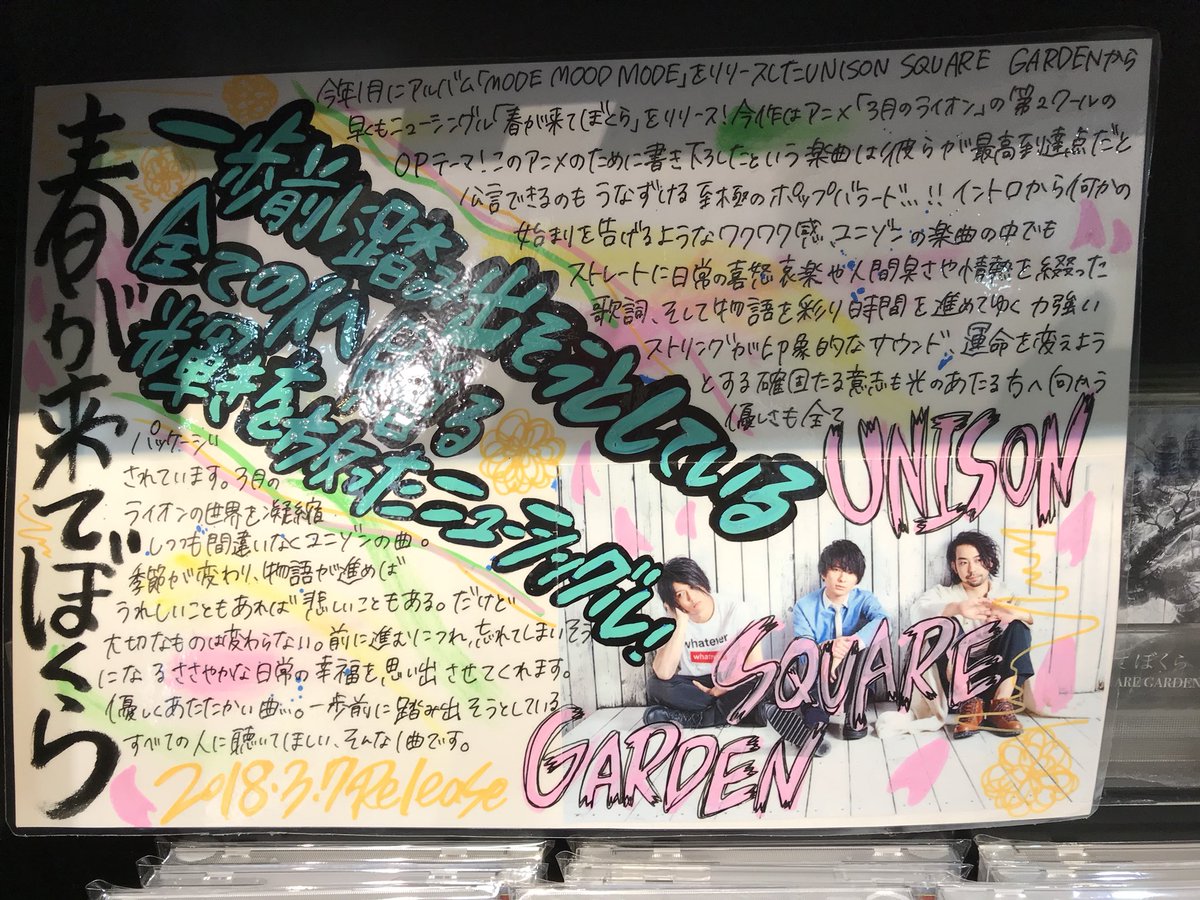 春が来てぼくら
今年1月にアルバム「MODE MOOD MODE」をリリースしたUNISON SQUARE GARDENから
早くもニューシングル「春が来てぼくら」をリリース!今作はアニメ「3月のライオン」の第2クールの
OPテーマ!このアニメのために書き下ろしたという楽曲は彼らが最高到達点だと
公言できるのもうなずける至極のポップバラード…!!イントロから何かの
始まりを告げるようなワクワク感、ユニゾンの楽曲の中でも
ストレートに日常の喜怒哀楽や人間臭さや情熱を綴った
歌詞、そして物語を彩り時間を進めてゆく力強い
ストリングが印象的なサウンド、運命を変えよう
とする確固たる意志も光のあたる方へ向かう
優しさも全て
パッケージ
されています。3月の
ライオンの世界を凝縮
しつつも間違いなくユニゾンの曲。
季節が変わり、物語が進めば
うれしいこともあれば悲しいこともある。だけど
大切なものは変わらない。前に進むにつれ、忘れてしまいそう
になるささやかな日常の幸福を思い出させてくれます。
優しくあたたかい曲…。一歩前に踏み出そうとしている
すべての人に聴いてほしい、そんな1曲です。
一歩前に踏み出そうとしている
全ての人へ贈る
光輝きを放ったニューシングル!
2018.3.7 Release
UNISON
SQUARE
GARDEN
whatever
てぼくら
ARE GARDEN